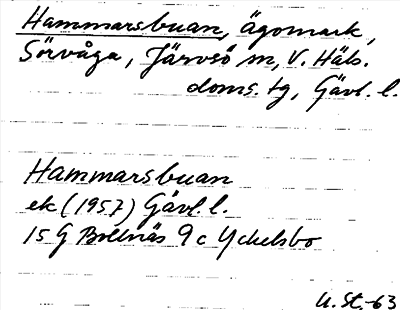 Hammarsbuan, ägomark,
Sörvåga, Järvsö sn, V. Häls.
doms. tg, Gävl. l.
Hammarsbuan
ek (1957) Gävl. l.
15 G Bollnäs 9 c Yckelsbo
U. St.-63